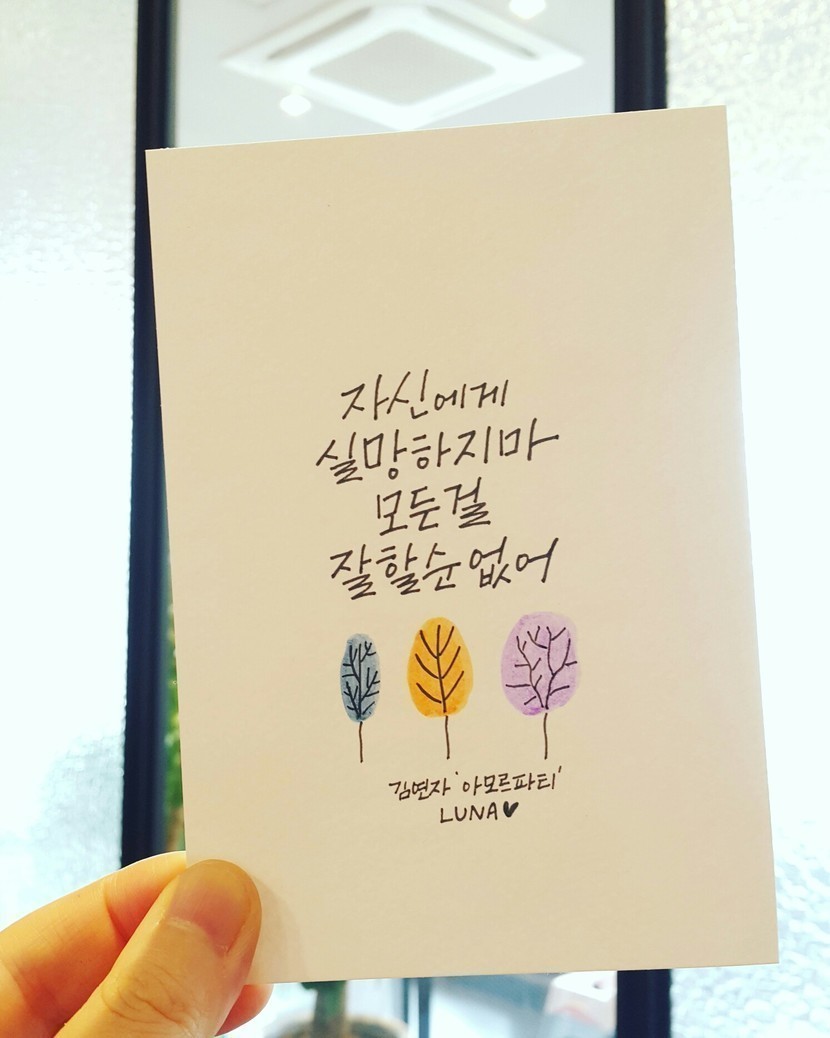 자신에게
실망하지마
모든걸
잘할순없어
김연자 '아모르파티'
LUNA♥